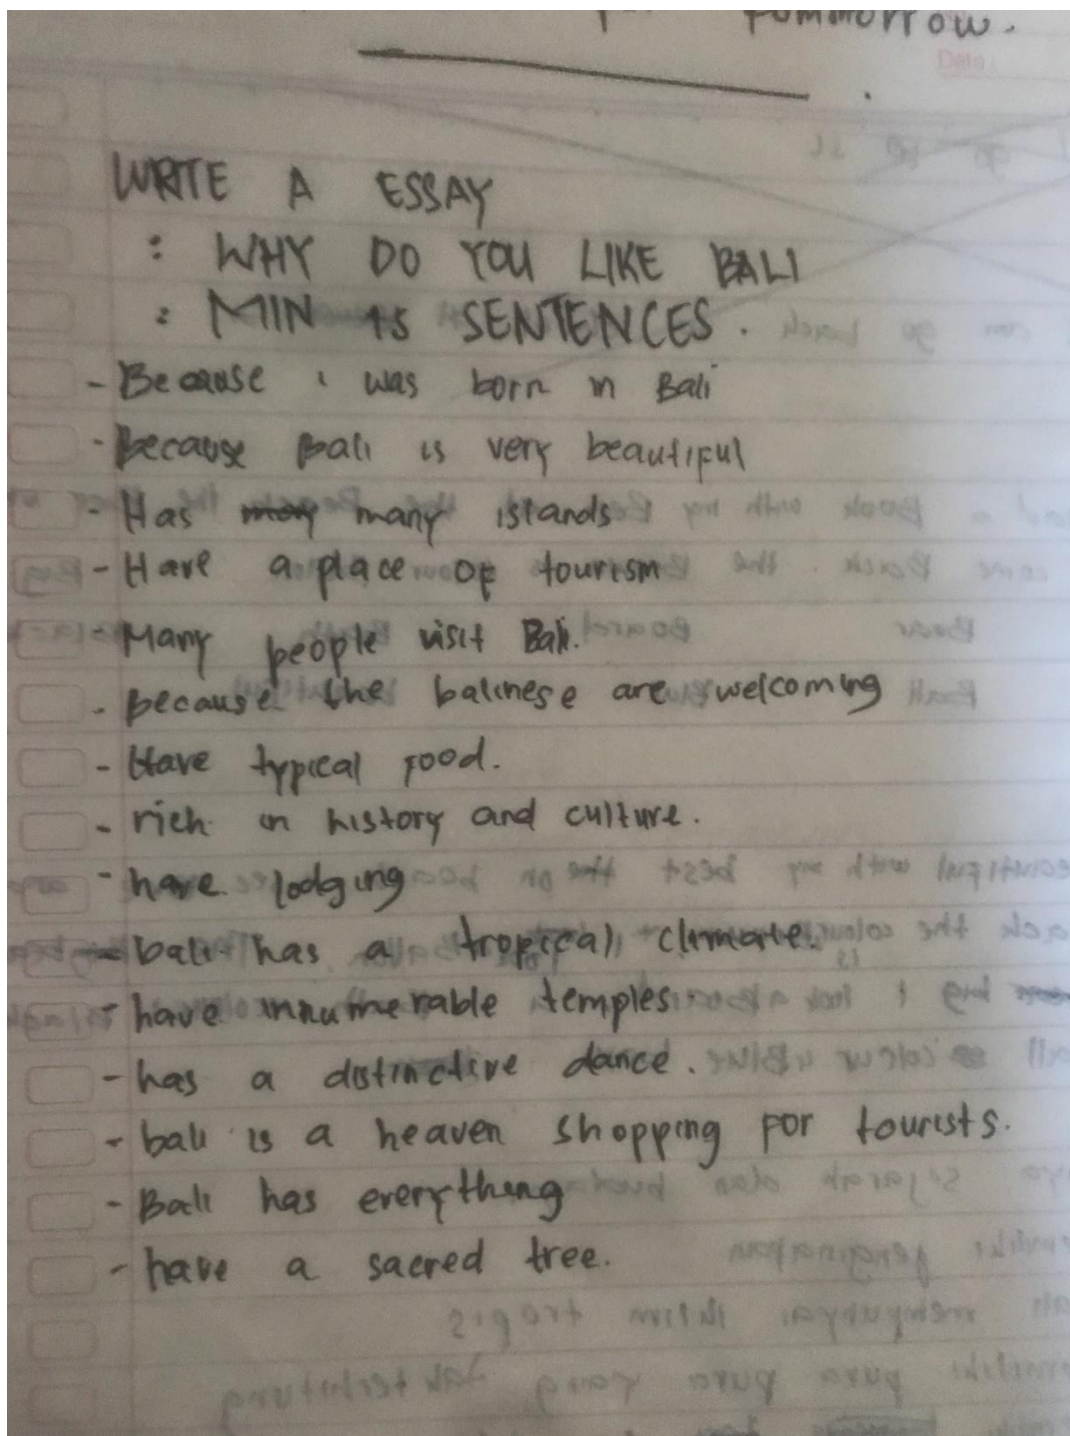 tommorrow.
Date
WRITE A ESSAY
: WHY DO YOU LIKE BALI
: MIN 15 SENTENCES.
- Because i was born in Bali
- Because Bali is very beautiful
- Has many islands
- Have a place of tourism
- Many people visit Bali.
- because the balinese are welcoming
- Have typical food.
- rich in history and culture.
- have lodging
- bali has a tropical climate.
- have innumerable temples.
- has a distinctive dance.
- bali is a heaven shopping for tourists.
- Bali has everything
- have a sacred tree.